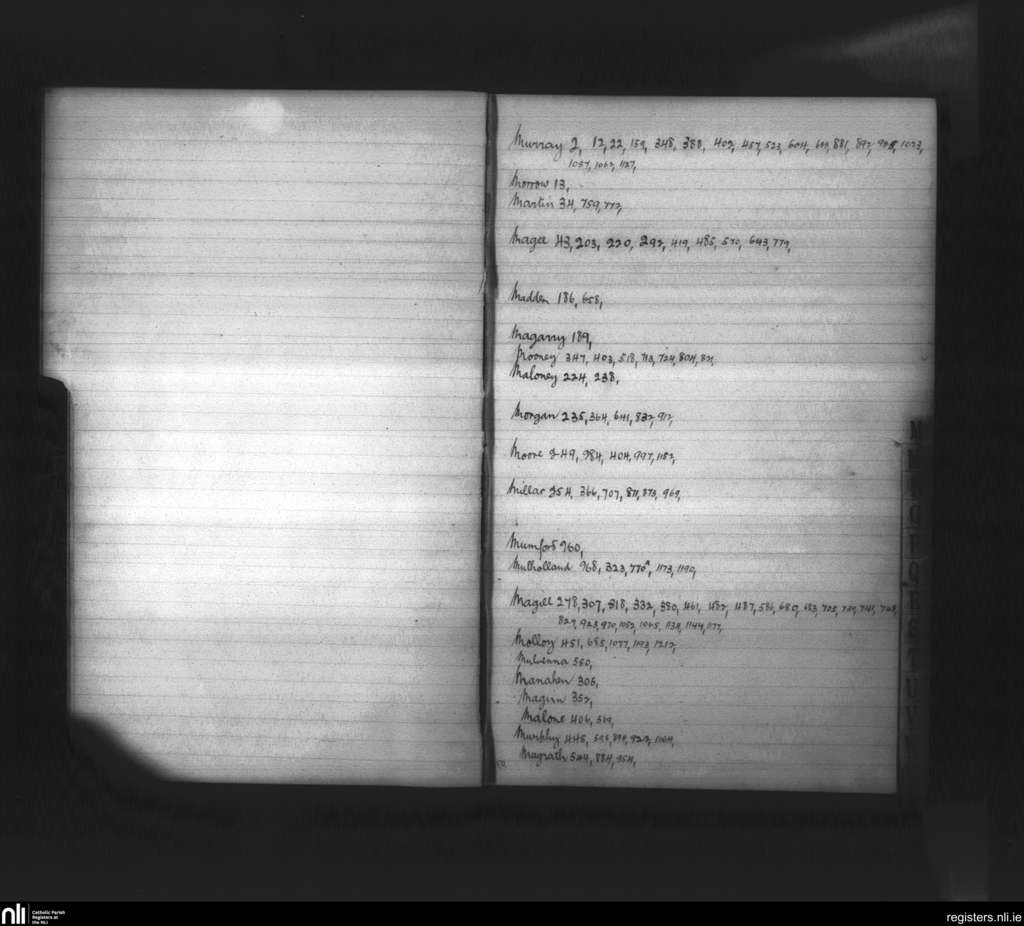 Murray 2, 12, 22, 159, 348, 388, 402, 457, 523, 604, 881, 892, 1023,
1057, 1062, 1127,
Morrow 13,
Martin 34, 759, 772,
Magee 43, 203, 220, 292, 419, 485, 570, 643, 779,
Madden 186, 658,
Magarry 189,
Mooney 347, 403, 518, 713, 724, 804, 821,
Maloney 224, 238,
Morgan 235, 364, 641, 832, 912,
Moore 249, 284, 404, 997, 1182,
Millar 254, 366, 707, 871, 873, 969,
Mumford 960,
Mulholland 968, 323, 770ᴬ, 1173, 1190,
Magill 278, 307, 318, 332, 380, 461, 482, 487, 586, 680, 683, 705,
829, 923, 970, 1052, 1065, 1134, 1144, 1177,
Molloy 451, 685, 1077, 1193, 1212,
Mulvenna 550,
Manahen 305,
Maginn 352,
Malone 406, 569,
Murphy 445, 922, 1004,
Magrath 544, 884, 954,
50.
nli
Catholic Parish
Registers at
the NLI
registers.nli.ie